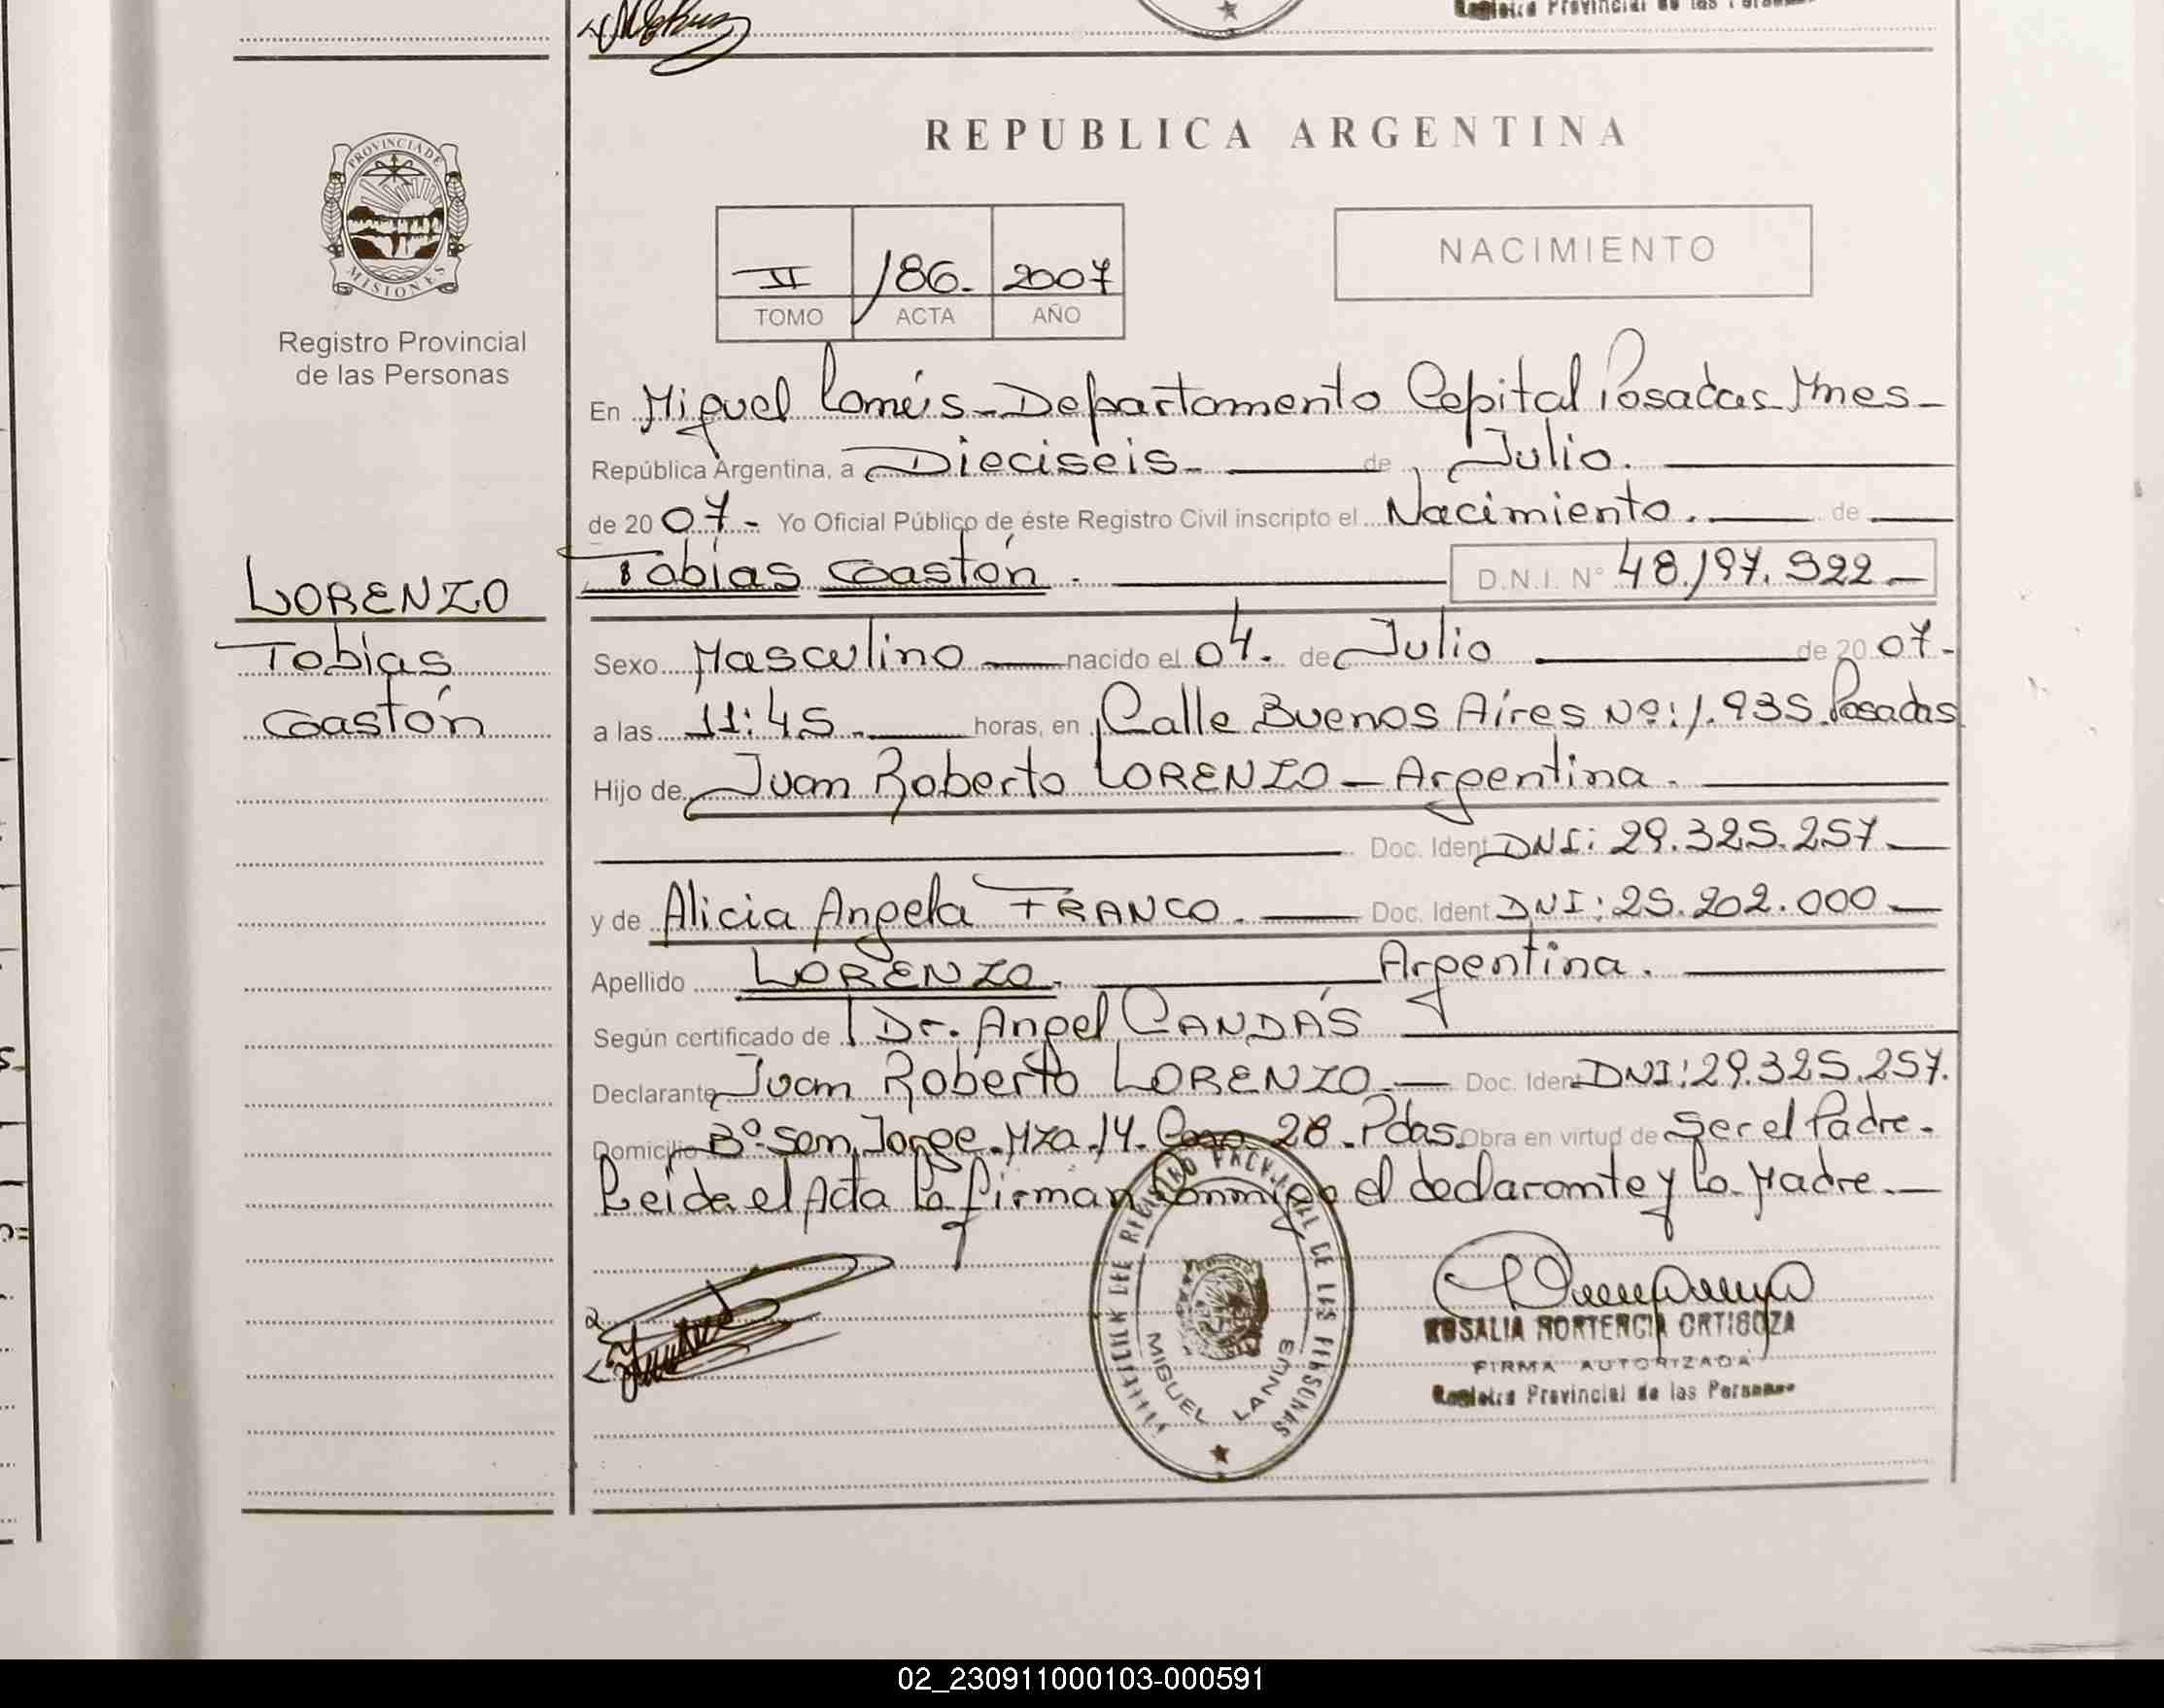 Registro Provincial de las Personas
PROVINCIA DE
MISIONES
Registro Provincial
de las Personas
LORENZO
Tobías
Gastón
REPUBLICA ARGENTINA
II 186. 2007
TOMO ACTA AÑO
NACIMIENTO
En Miguel Lanús - Departamento Capital Posadas Mnes -
República Argentina, a Dieciseis - de Julio.
de 2007 - Yo Oficial Público de éste Registro Civil inscripto el Nacimiento. de
Tobías Gastón. D.N.I. N° 48.197.922 -
Sexo Masculino nacido el 04. de Julio de 2007 -
a las 11:45. horas, en Calle Buenos Aires Nº: 1.935. Posadas
Hijo de Juan Roberto LORENZO - Argentina.
Doc. Ident DNI: 29.325.257
y de Alicia Angela FRANCO. Doc. Ident DNI: 25.202.000
Apellido LORENZO. Argentina.
Según certificado de Dr. Angel CANDÁS
Declarante Juan Roberto LORENZO. Doc. Ident DNI: 29.325.257.
Domicilio Bº San Jorge. Mza. 14. Casa 28. Pdas. Obra en virtud de Ser el Padre.
Leida el Acta la firman conmigo el declarante y la Madre.
REGISTRO PROVINCIAL DE LAS PERSONAS
MIGUEL LANUS
ROSALIA HORTENCIA ORTIGOZA
FIRMA AUTORIZADA
Registro Provincial de las Personas
02_230911000103-000591